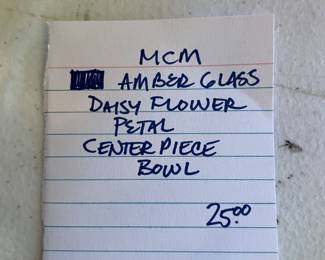 MCM
AMBER GLASS
DAISY FLOWER
PETAL
CENTER PIECE
BOWL
25.00